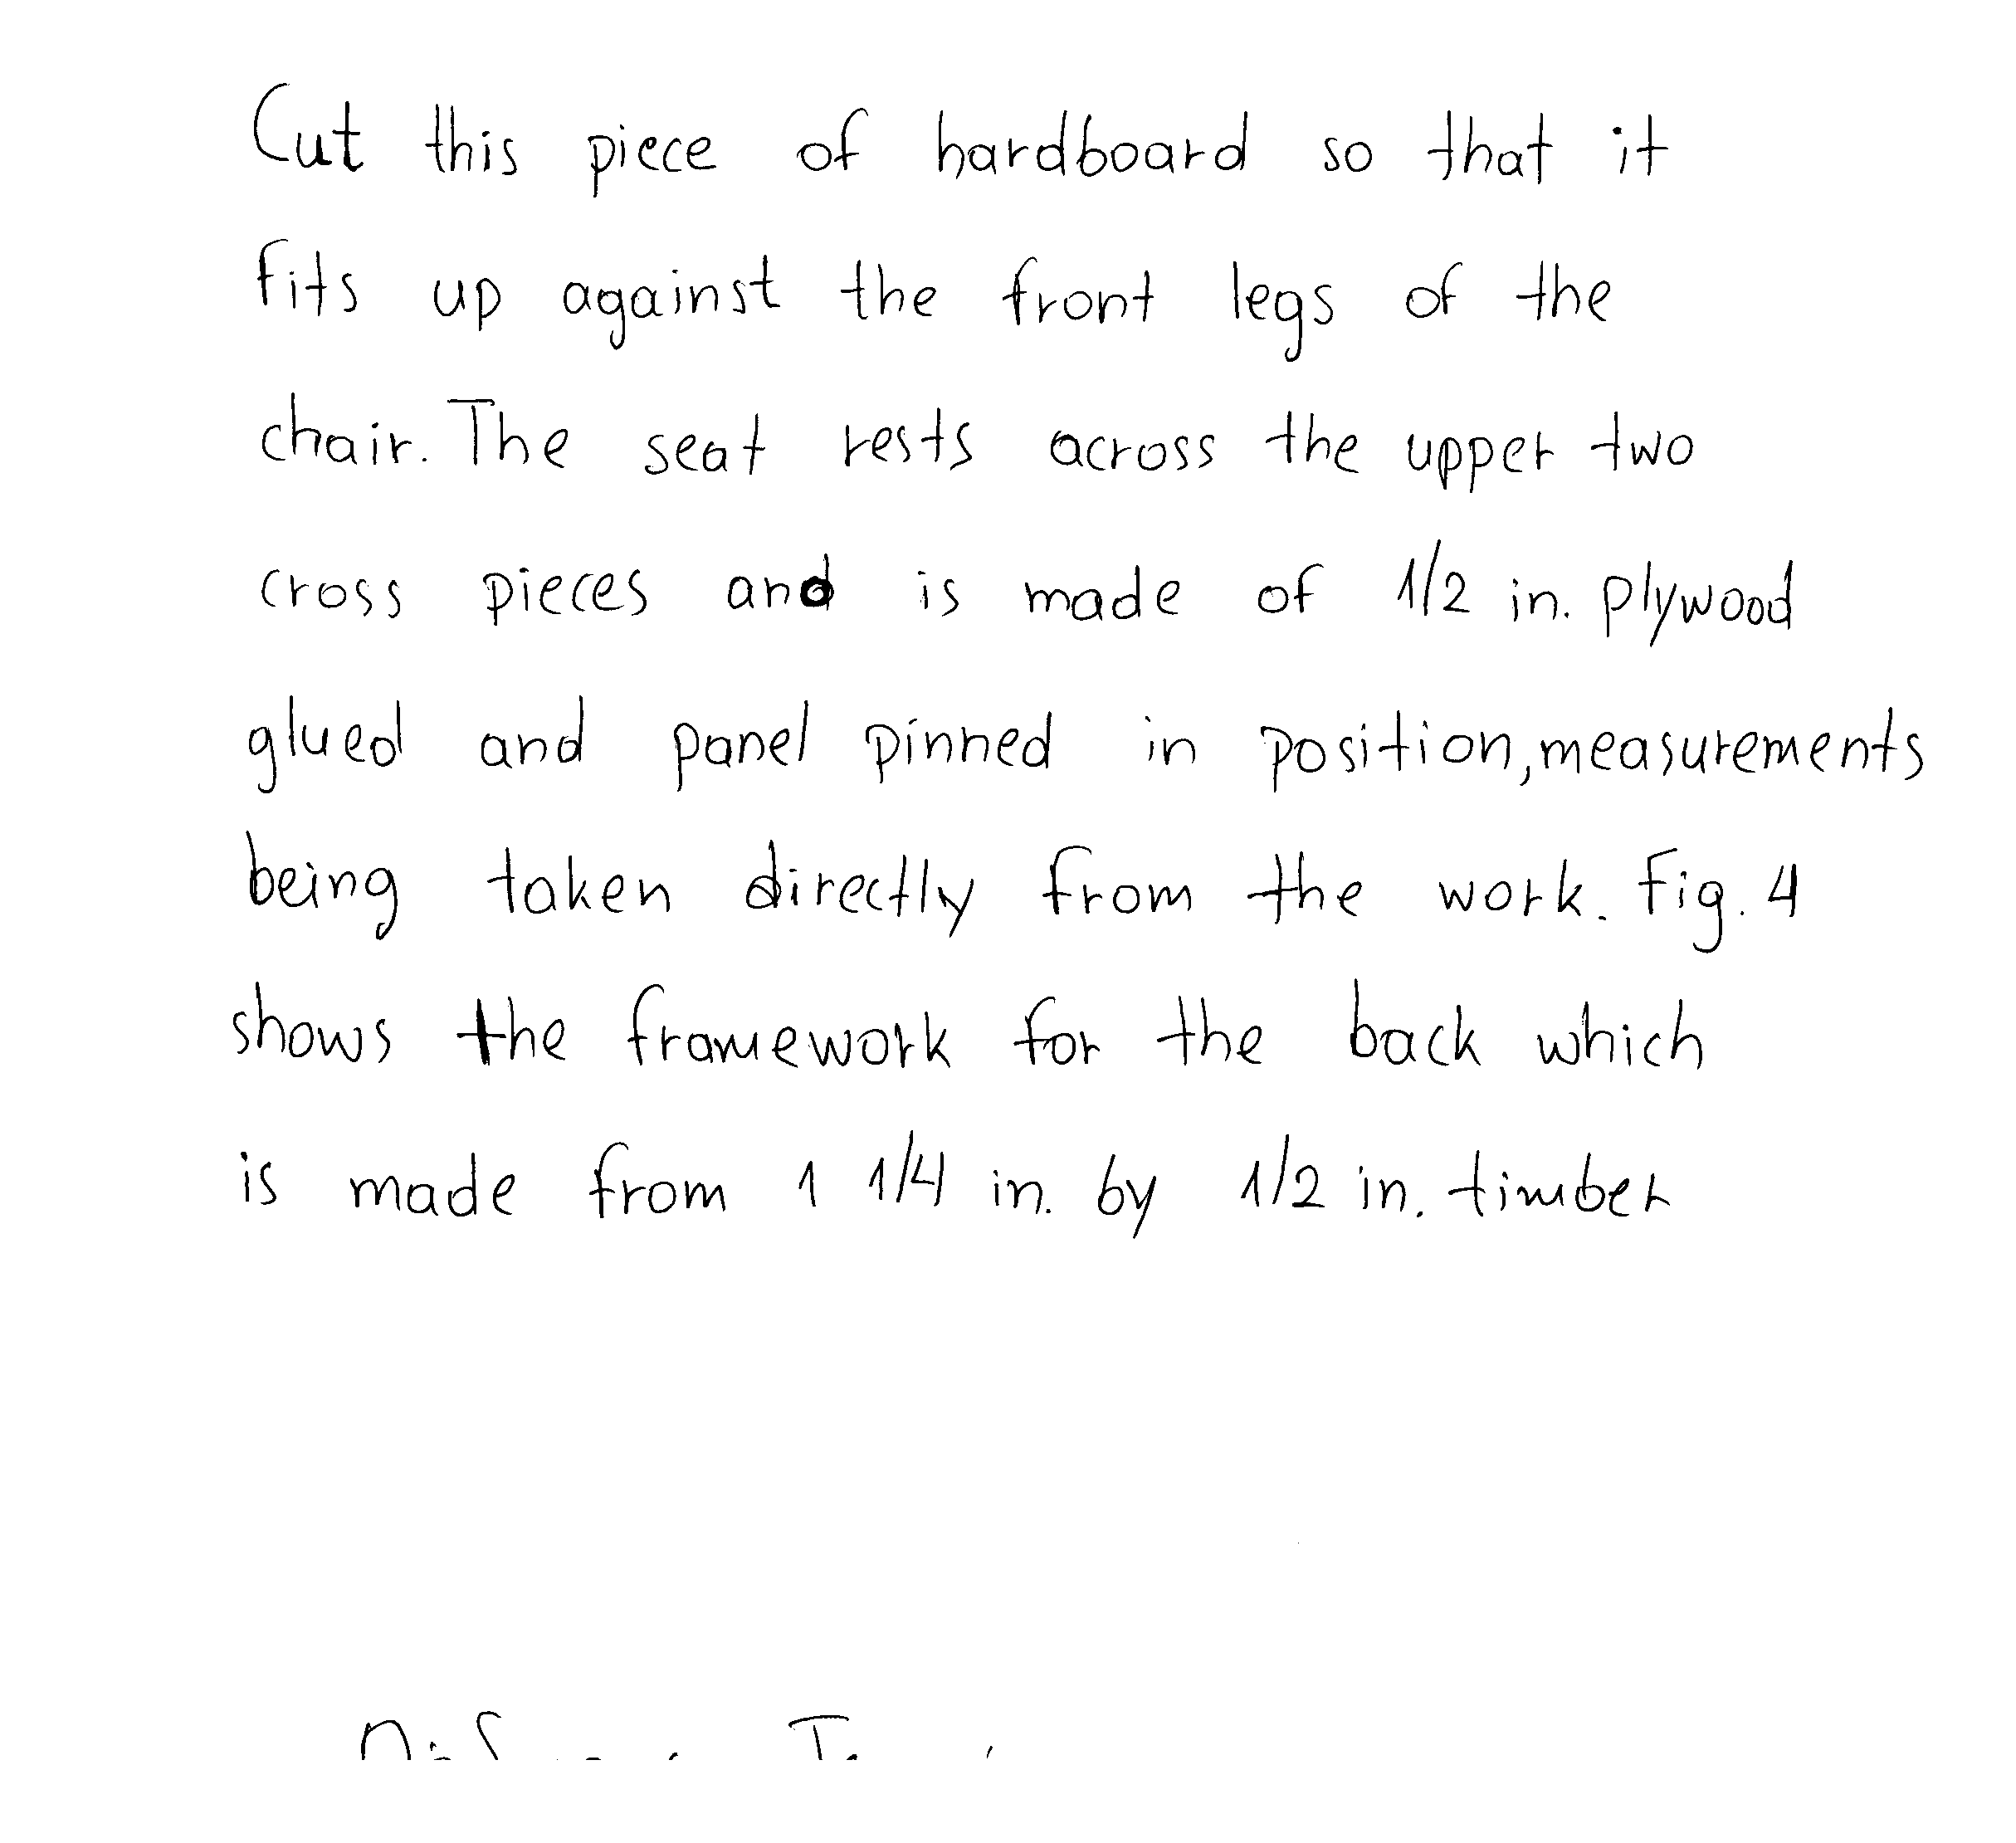 Cut this piece of hardboard so that it
fits up against the front legs of the
chair. The seat rests across the upper two
cross pieces and is made of 1/2 in. plywood
glued and panel pinned in position, measurements
being taken directly from the work. Fig. 4
shows the framework for the back which
is made from 1 1/4 in. by 1/2 in. timber